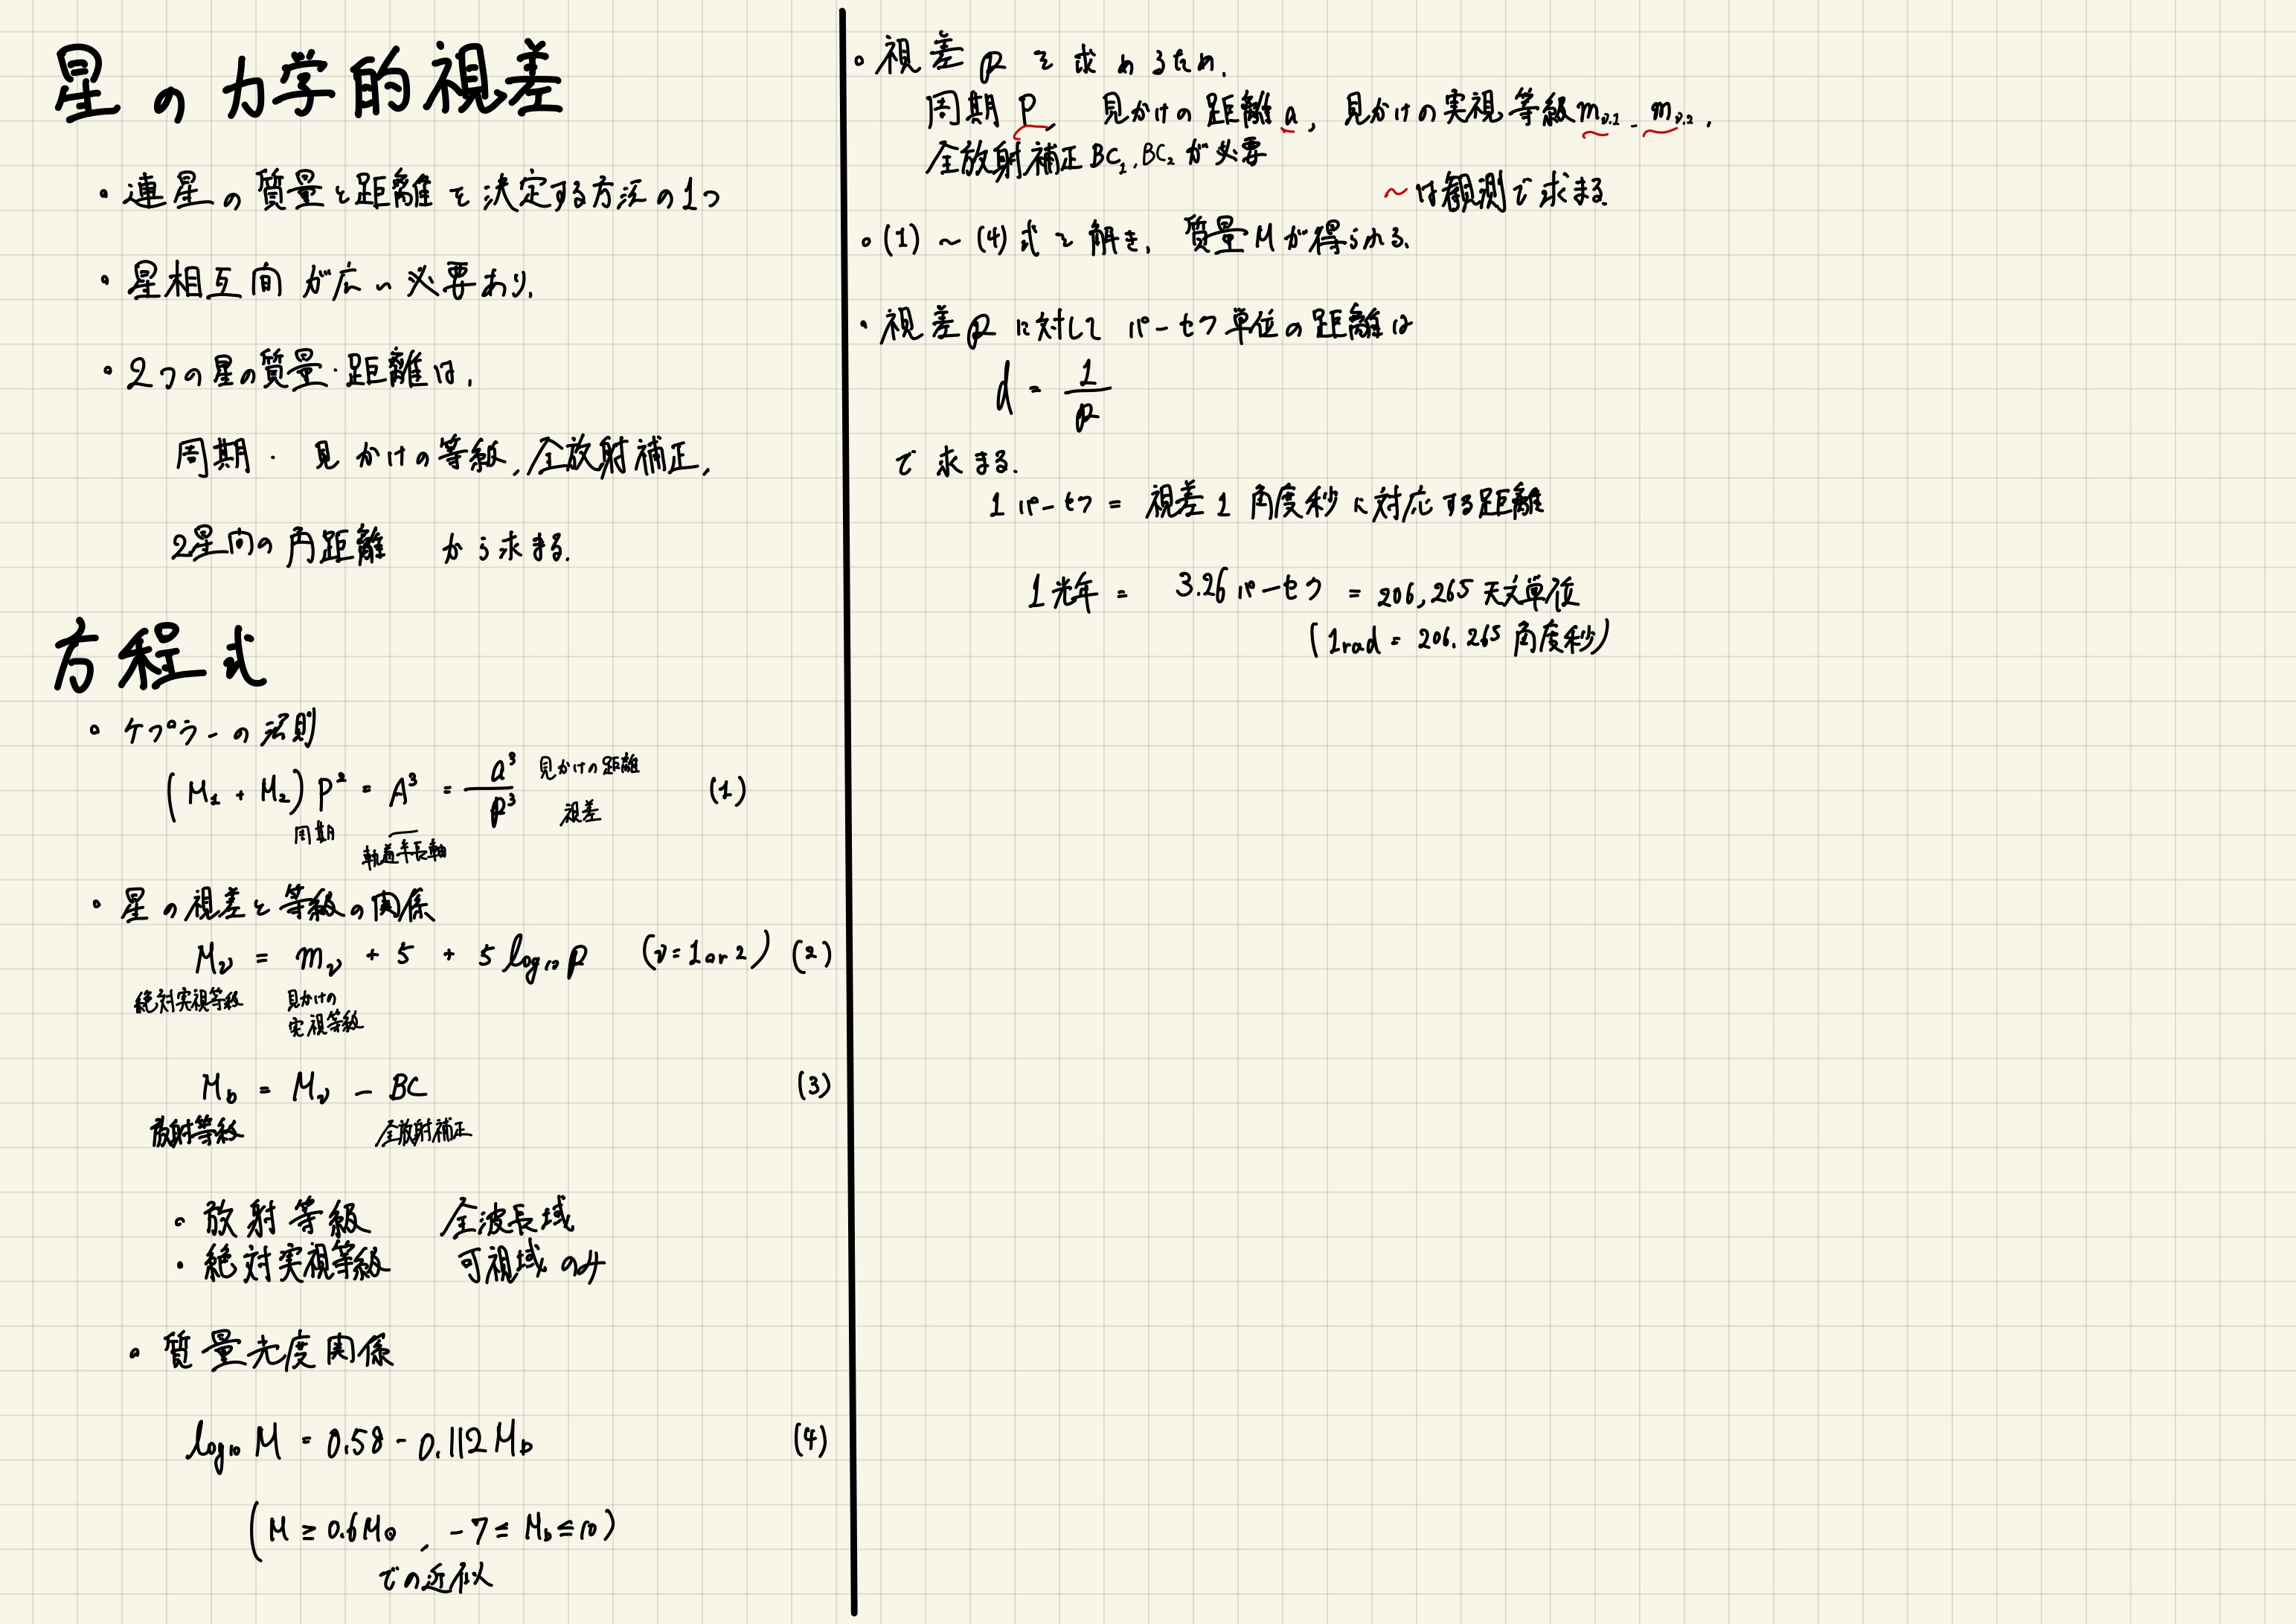 星の力学的視差
・連星の質量と距離を決定する方法の1つ
・星相互間が広い必要あり.
・2つの星の質量・距離は,
周期・見かけの等級,全放射補正,
2星間の角距離 から求まる.
方程式
・ケプラーの法則
(M₁ + M₂) P² = A³ = a³/p³ 見かけの距離 (1)
視差
周期
軌道半長軸
・星の視差と等級の関係
Mν = mν + 5 + 5 log₁₀ p (ν = 1 or 2) (2)
絶対実視等級 見かけの
実視等級
M_b = Mν − BC (3)
放射等級 全放射補正
・放射等級 全波長域
・絶対実視等級 可視域のみ
・質量光度関係
log₁₀ M = 0.58 - 0.112 M_b (4)
(M ≥ 0.6M⊙, -7 ≤ M_b ≤ 10)
での近似
・視差 p を求めるため,
周期 P, 見かけの距離 a, 見かけの実視等級 m_ν.1, m_ν.2,
全放射補正 BC₁, BC₂ が必要
~は観測で求まる.
・(1)~(4)式を解き, 質量Mが得られる.
・視差 p に対して パーセク単位の距離は
d = 1/p
で求まる.
1パーセク = 視差1角度秒に対応する距離
1光年 = 3.26パーセク = 206,265天文単位
(1rad = 206.265 角度秒)